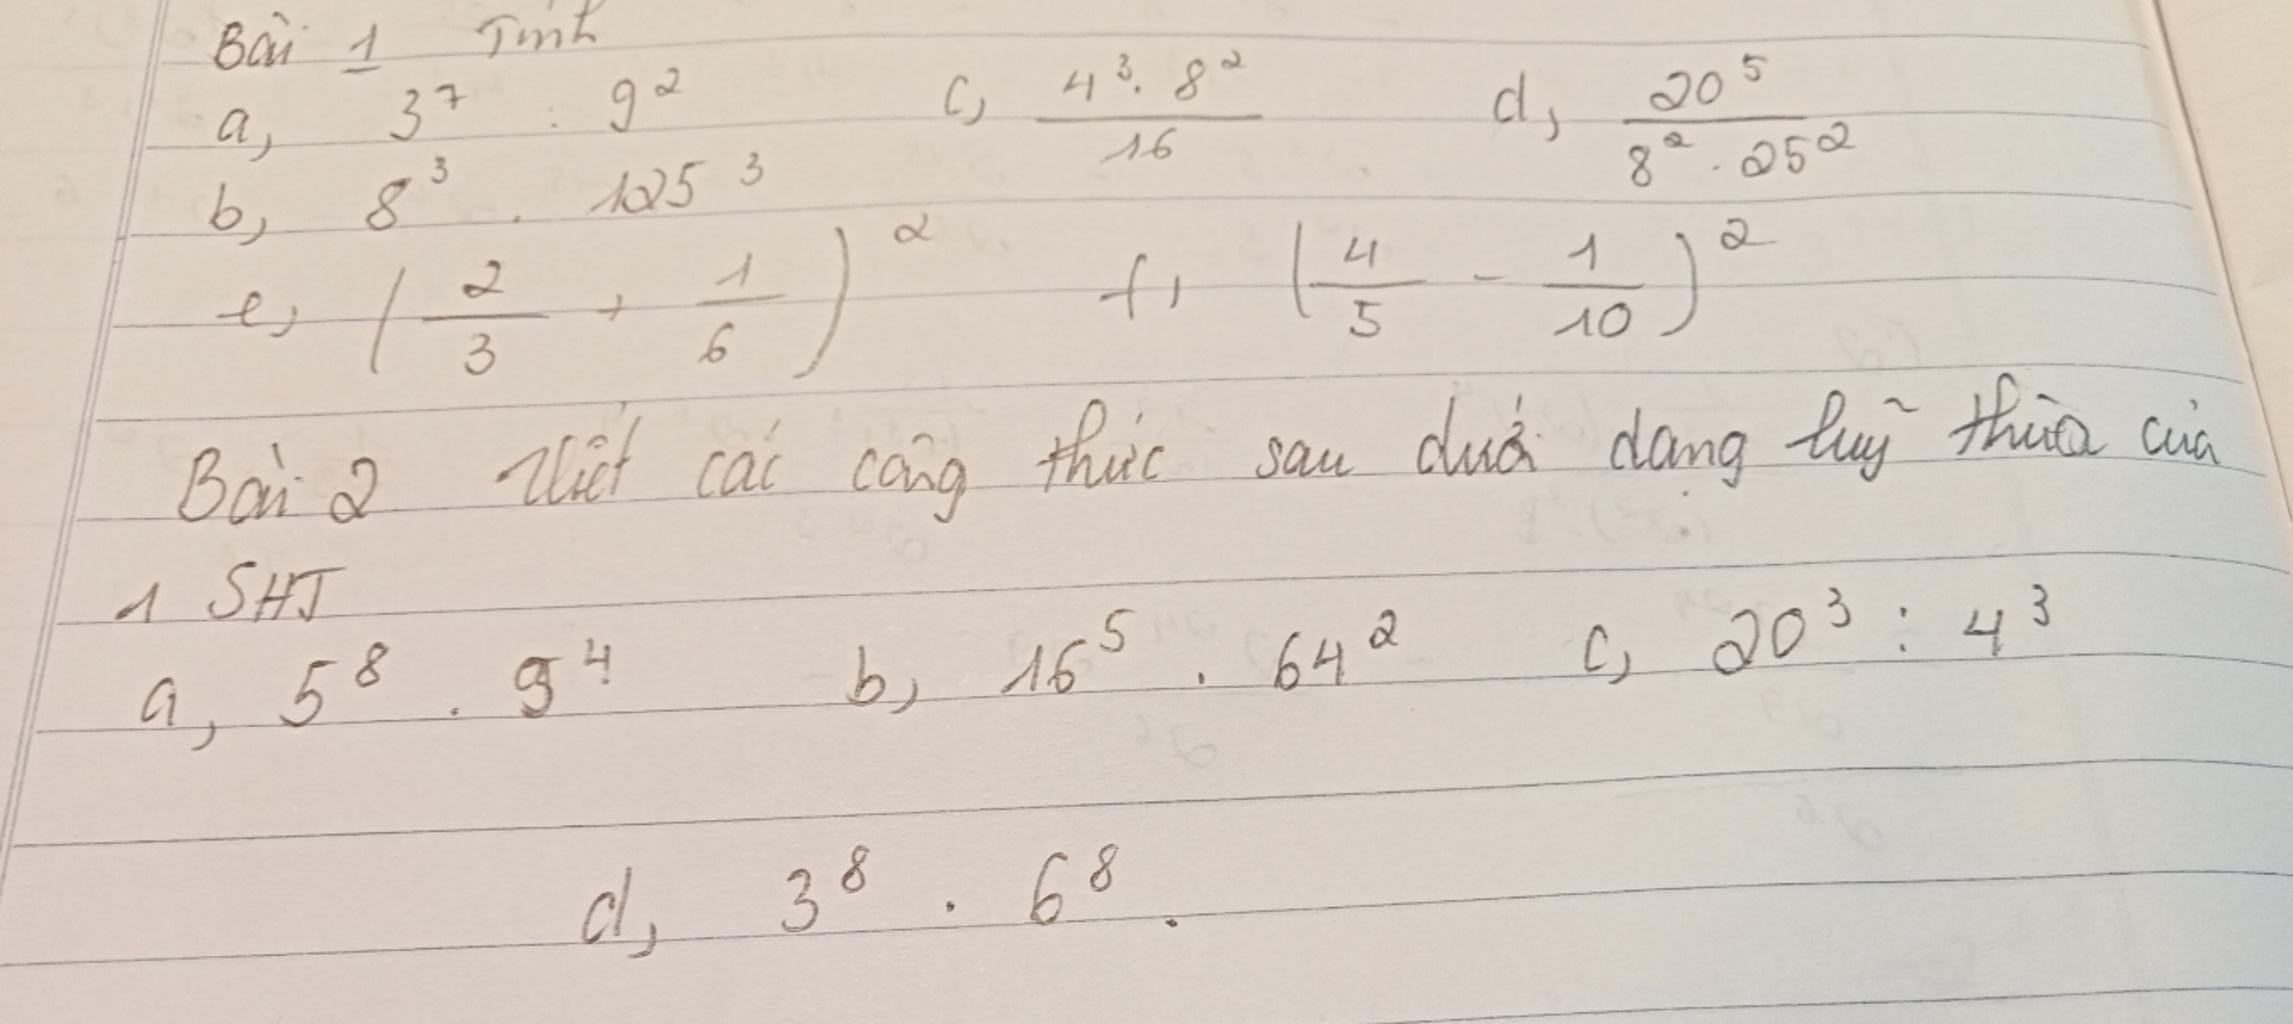 Bài 1 Tính
a, 3⁷ : 9² c, 4³. 8² / 16 d, 20⁵ / 8² . 25²
b, 8³ . 125³
e, (2/3 + 1/6)² f, (4/5 - 1/10)²
Bài 2 Viết các công thức sau dưới dạng luỹ thừa của
1 SHT
a, 5⁸ . 9⁴ b, 16⁵ . 64² c, 20³ : 4³
d, 3⁸ . 6⁸.